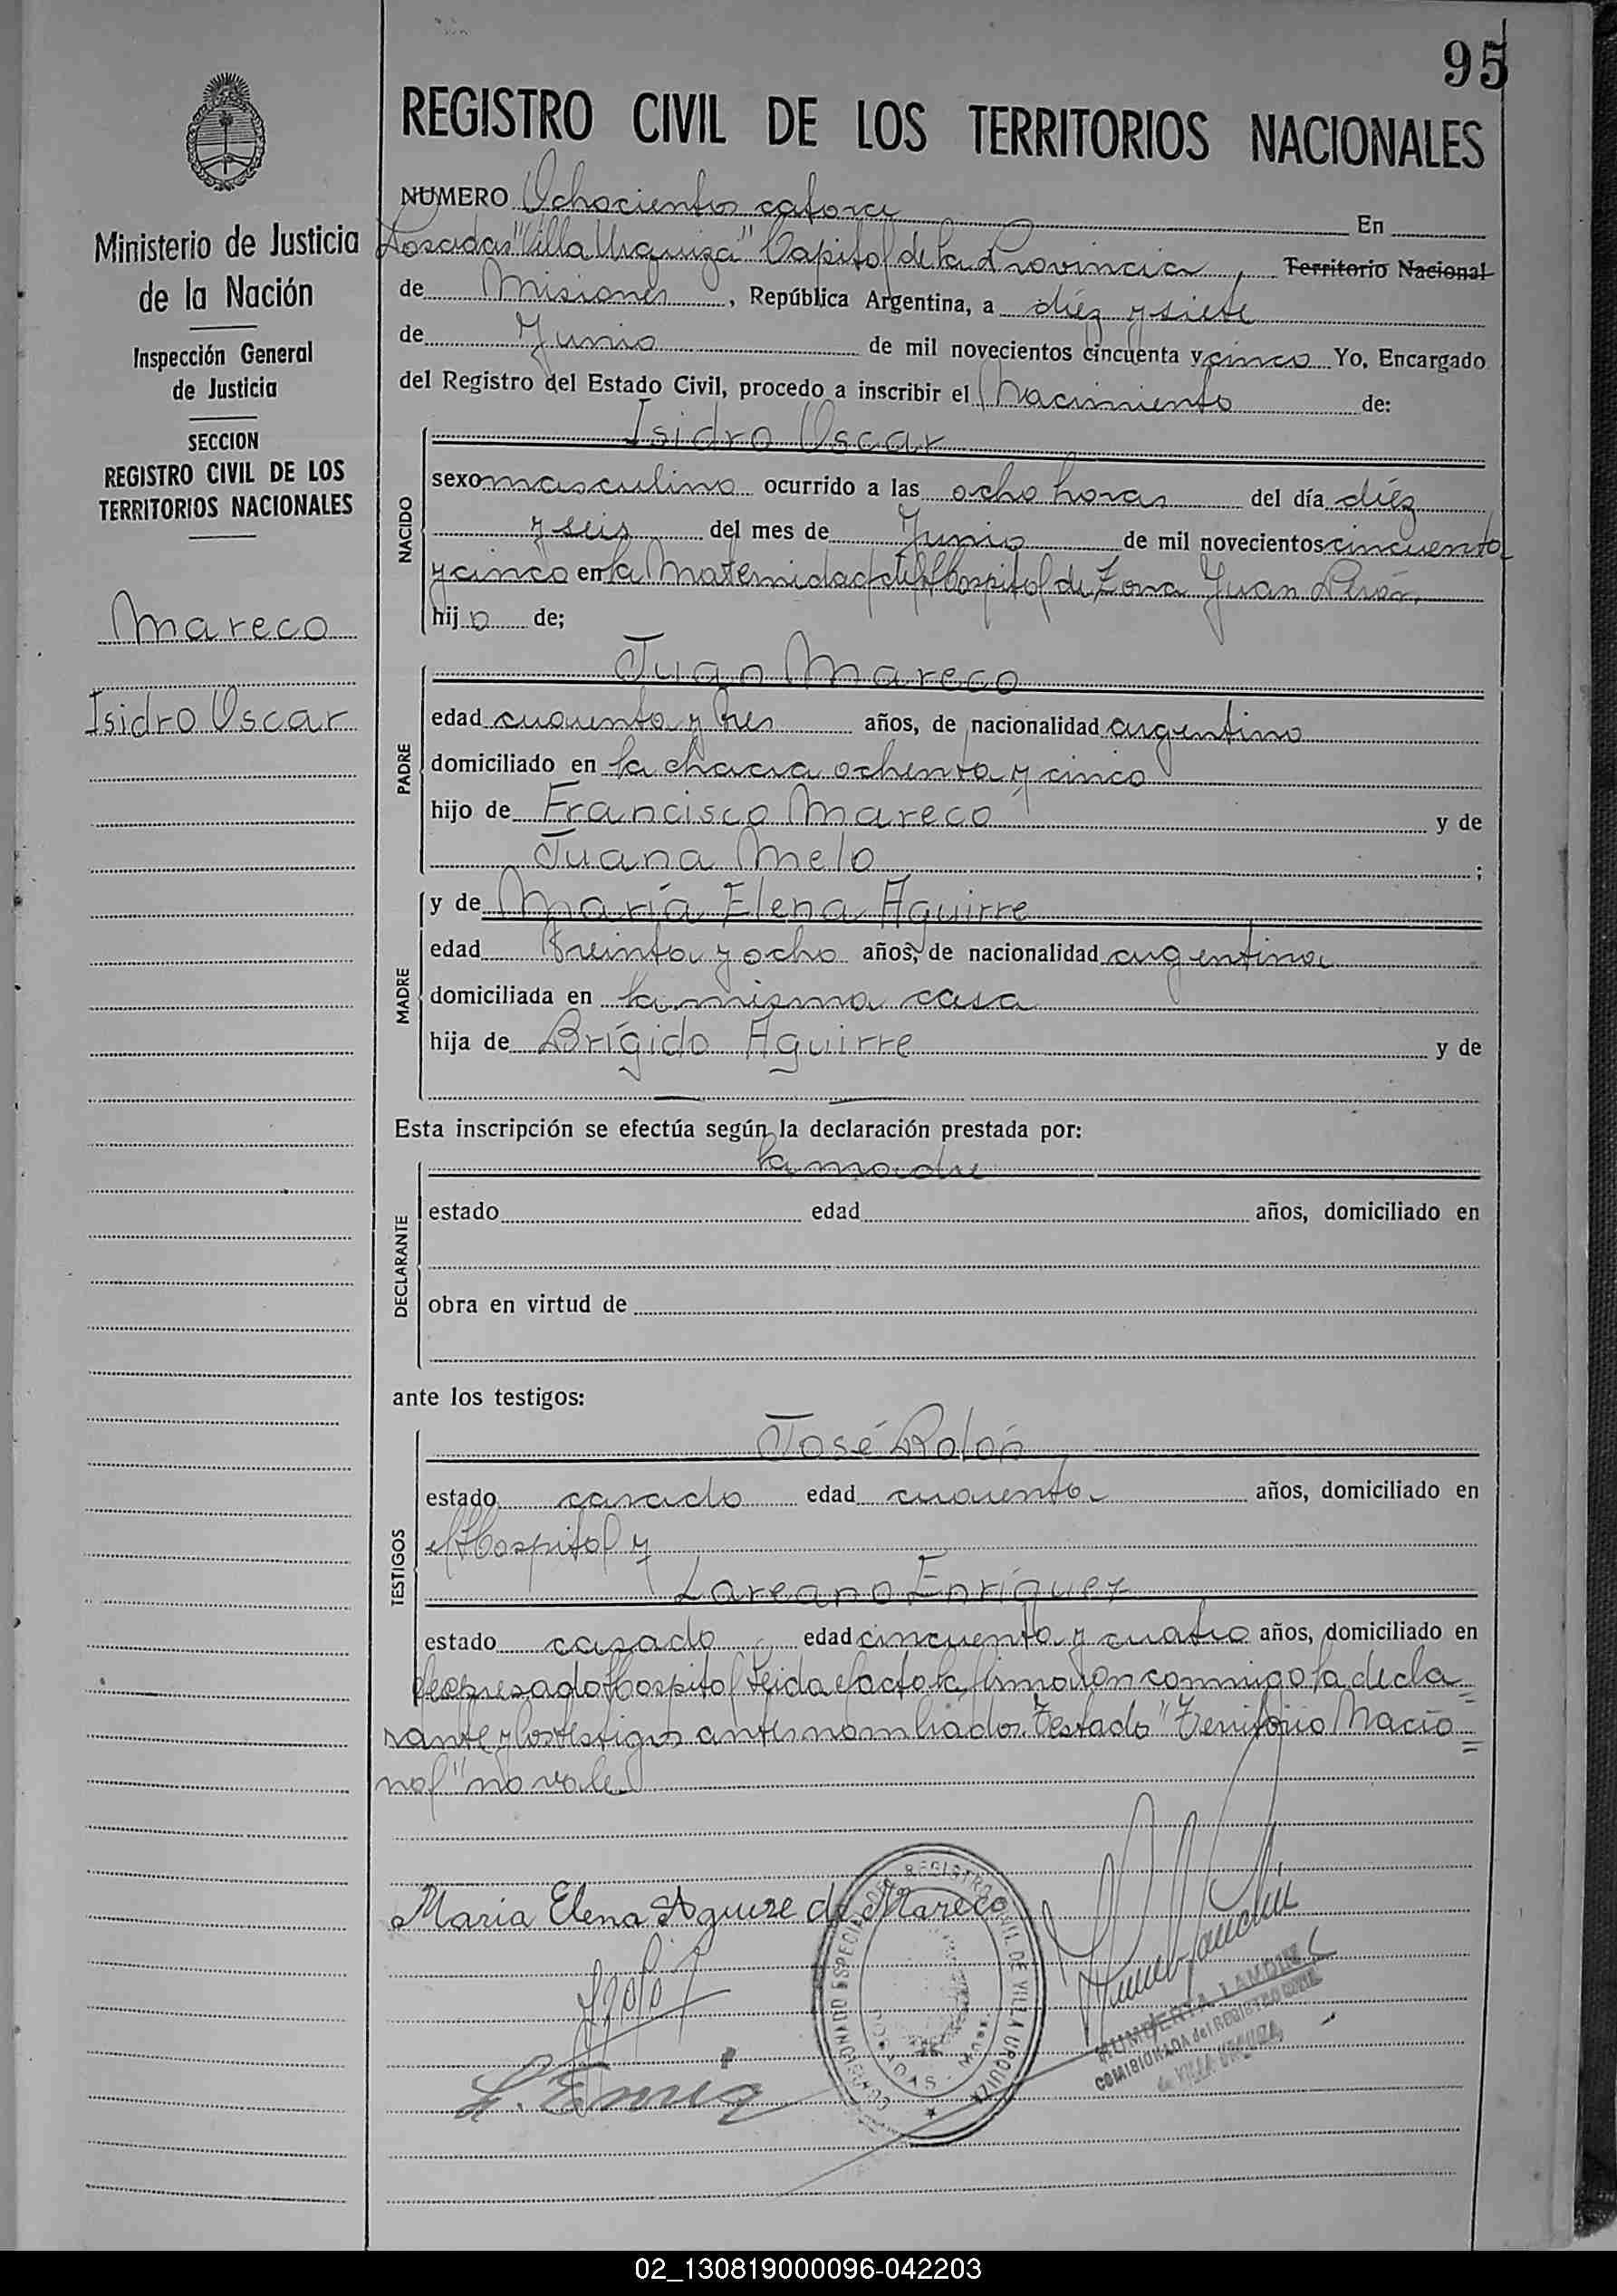 95
REGISTRO CIVIL DE LOS TERRITORIOS NACIONALES
Ministerio de Justicia
de la Nación
Inspección General
de Justicia
SECCION
REGISTRO CIVIL DE LOS
TERRITORIOS NACIONALES
Mareco
Isidro Oscar
NUMERO Ochocientos catorce En
Posadas "Villa Urquiza" Capital de la Provincia, Territorio Nacional
de Misiones, República Argentina, a diéz y siete
de Junio de mil novecientos cincuenta y cinco Yo, Encargado
del Registro del Estado Civil, procedo a inscribir el Nacimiento de:
NACIDO
Isidro Oscar
sexo masculino ocurrido a las ocho horas del día diéz
y seis del mes de Junio de mil novecientos cincuenta
y cinco en la Maternidad del Hospital de Zona Juan Perón,
hijo de;
PADRE
Juan Mareco
edad cuarenta y tres años, de nacionalidad argentino
domiciliado en la chacra ochenta y cinco
hijo de Francisco Mareco y de
Juana Melo ;
MADRE
y de María Elena Aguirre
edad treinta y ocho años, de nacionalidad argentina
domiciliada en la misma casa
hija de Brígido Aguirre y de
Esta inscripción se efectúa según la declaración prestada por:
DECLARANTE
la madre
estado edad años, domiciliado en
obra en virtud de
ante los testigos:
TESTIGOS
José Rolón
estado casado edad cuarenta años, domiciliado en
el Hospital y
Lareano Enríquez
estado casado edad cincuenta y cuatro años, domiciliado en
el expresado Hospital Leida el acta la firmaron conmigo la decla=
rante y los testigos antes nombrados. Testado "Territorio Nacio=
nal" no vale
Maria Elena Aguirre de Mareco
COMISIONADO ESPECIAL DEL REGISTRO CIVIL DE VILLA URQUIZA
POSADAS - MISIONES
COMISIONADA del REGISTRO CIVIL
de VILLA URQUIZA
02_130819000096-042203